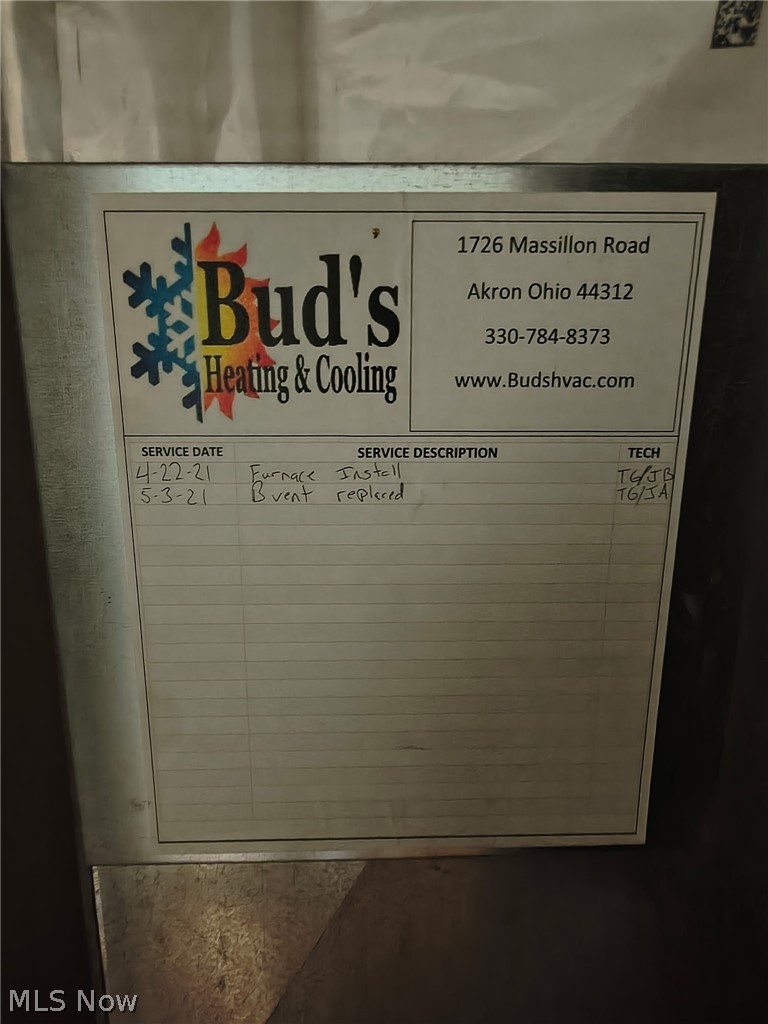 Bud's
Heating & Cooling
1726 Massillon Road
Akron Ohio 44312
330-784-8373
www.Budshvac.com
SERVICE DATE SERVICE DESCRIPTION TECH
4-22-21 Furnace Install TG/JB
5-3-21 B vent replaced TG/JA
MLS Now